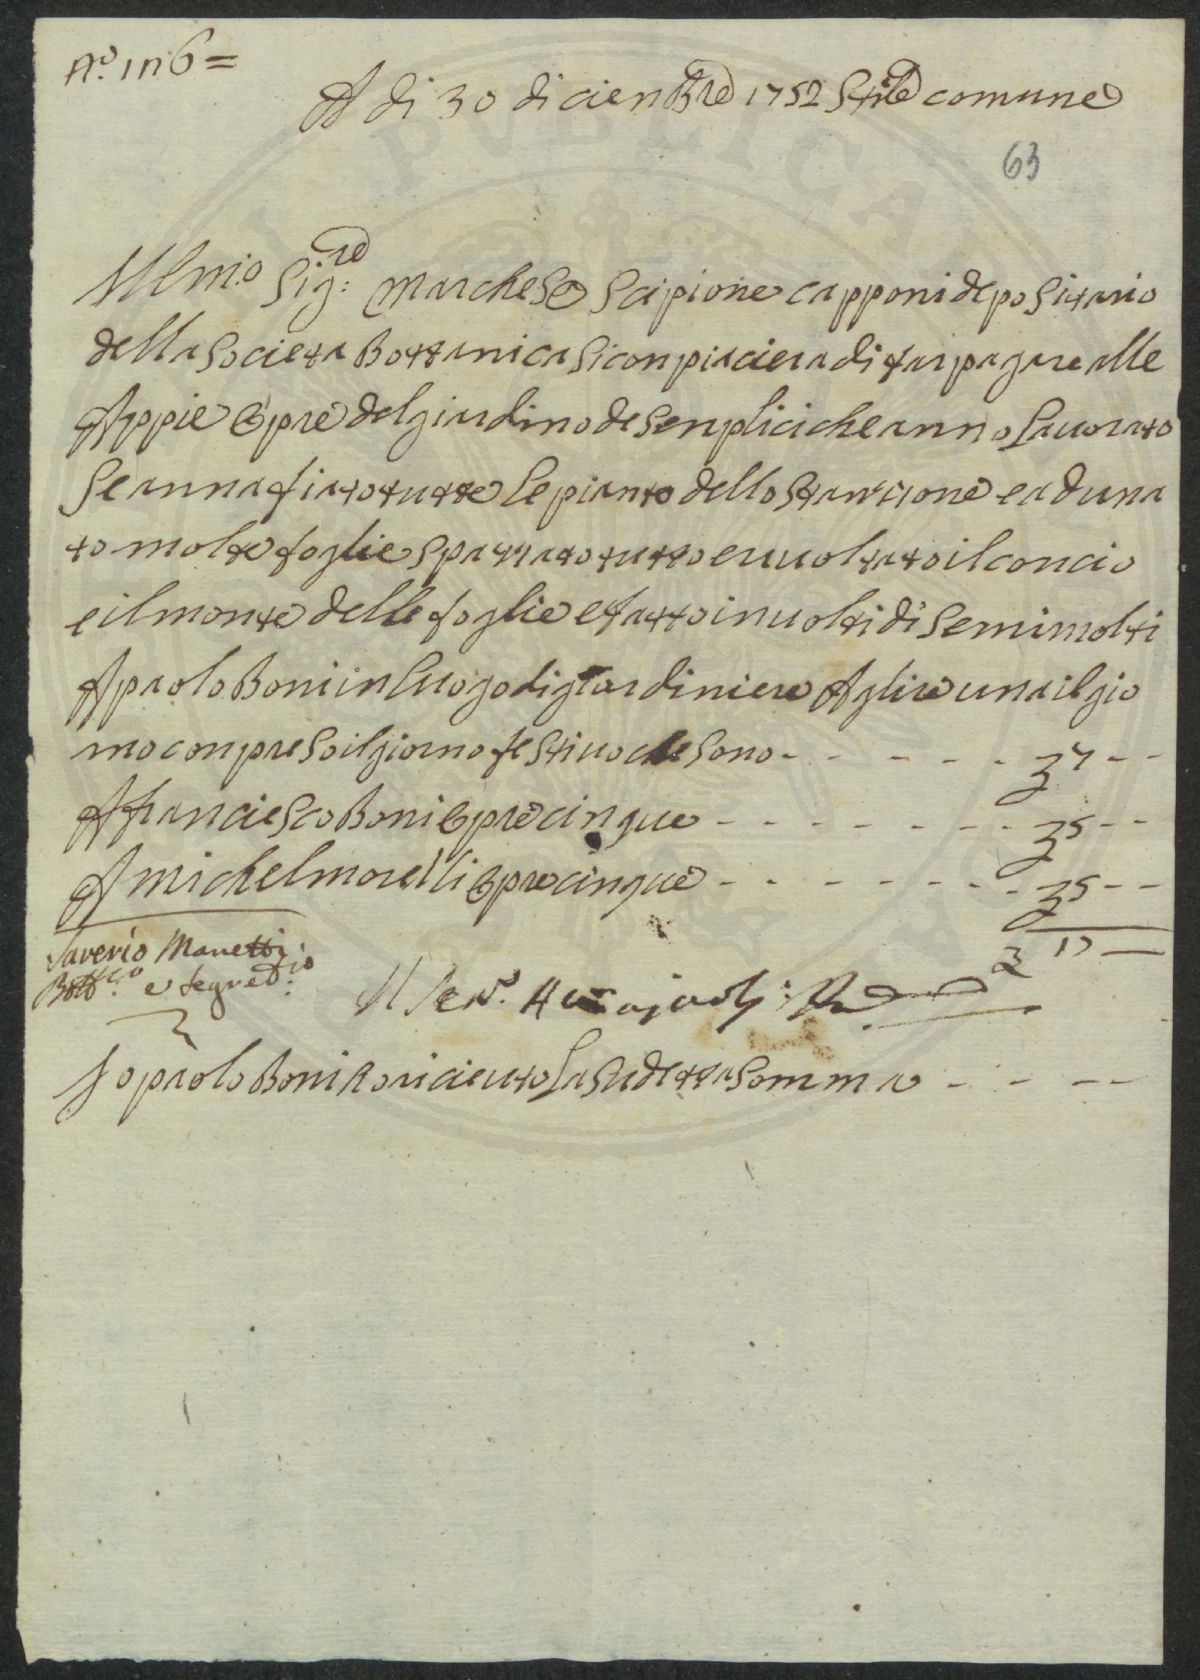 N.o 116=
A di 30 diciembre 1752 Stile comune
63
Illmo Sig:re Marchese Scipione capponi depositario
della Societa Bottanica Si conpiaciera di far pagare alle
Appie Opre del giardino de Senplici che anno Lauorato
Se annafiato tutte Le piante dello Stanzione e aduna
to molte foglie Spazzato tutto e uuoltato il concio
e il monte delle foglie e fatto inuolti di Semi molti
A paolo Boni in Luogo di giardiniere A lire una il gio
rno conpreso il giorno festiuo che sono - - - - - - 7 - -
A franciesco Boni Opre cinque - - - - - - - - 5 - -
A michel morelli Opre cinque - - - - - - - - 5 - -
17 —
Saverio Manetti
Bott.co e Segret:io
Il Sen.e
Io paolo Boni o riceuto La Sudetta Somma - - - -